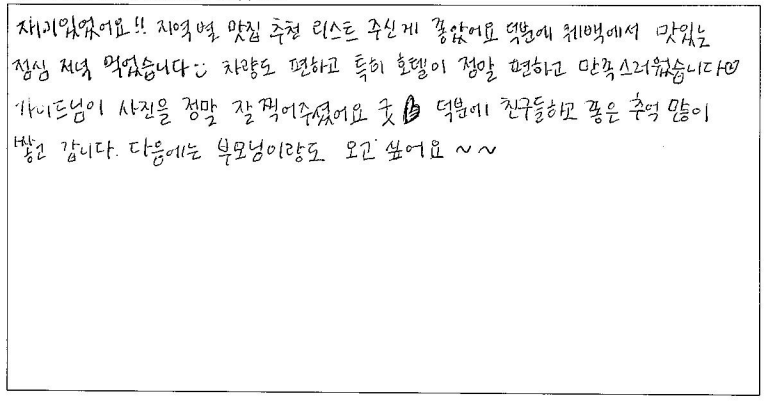 재미있었어요!! 지역별 맛집 추천 리스트 주신게 좋았어요 덕분에 퀘백에서 맛있는
점심 저녁 먹었습니다 차량도 편하고 특히 호텔이 정말 편하고 만족스러웠습니다
가이드님이 사진을 정말 잘 찍어주셨어요 굿 덕분에 친구들하고 좋은 추억 많이
쌓고 갑니다. 다음에는 부모님이랑도 오고 싶어요 ~~